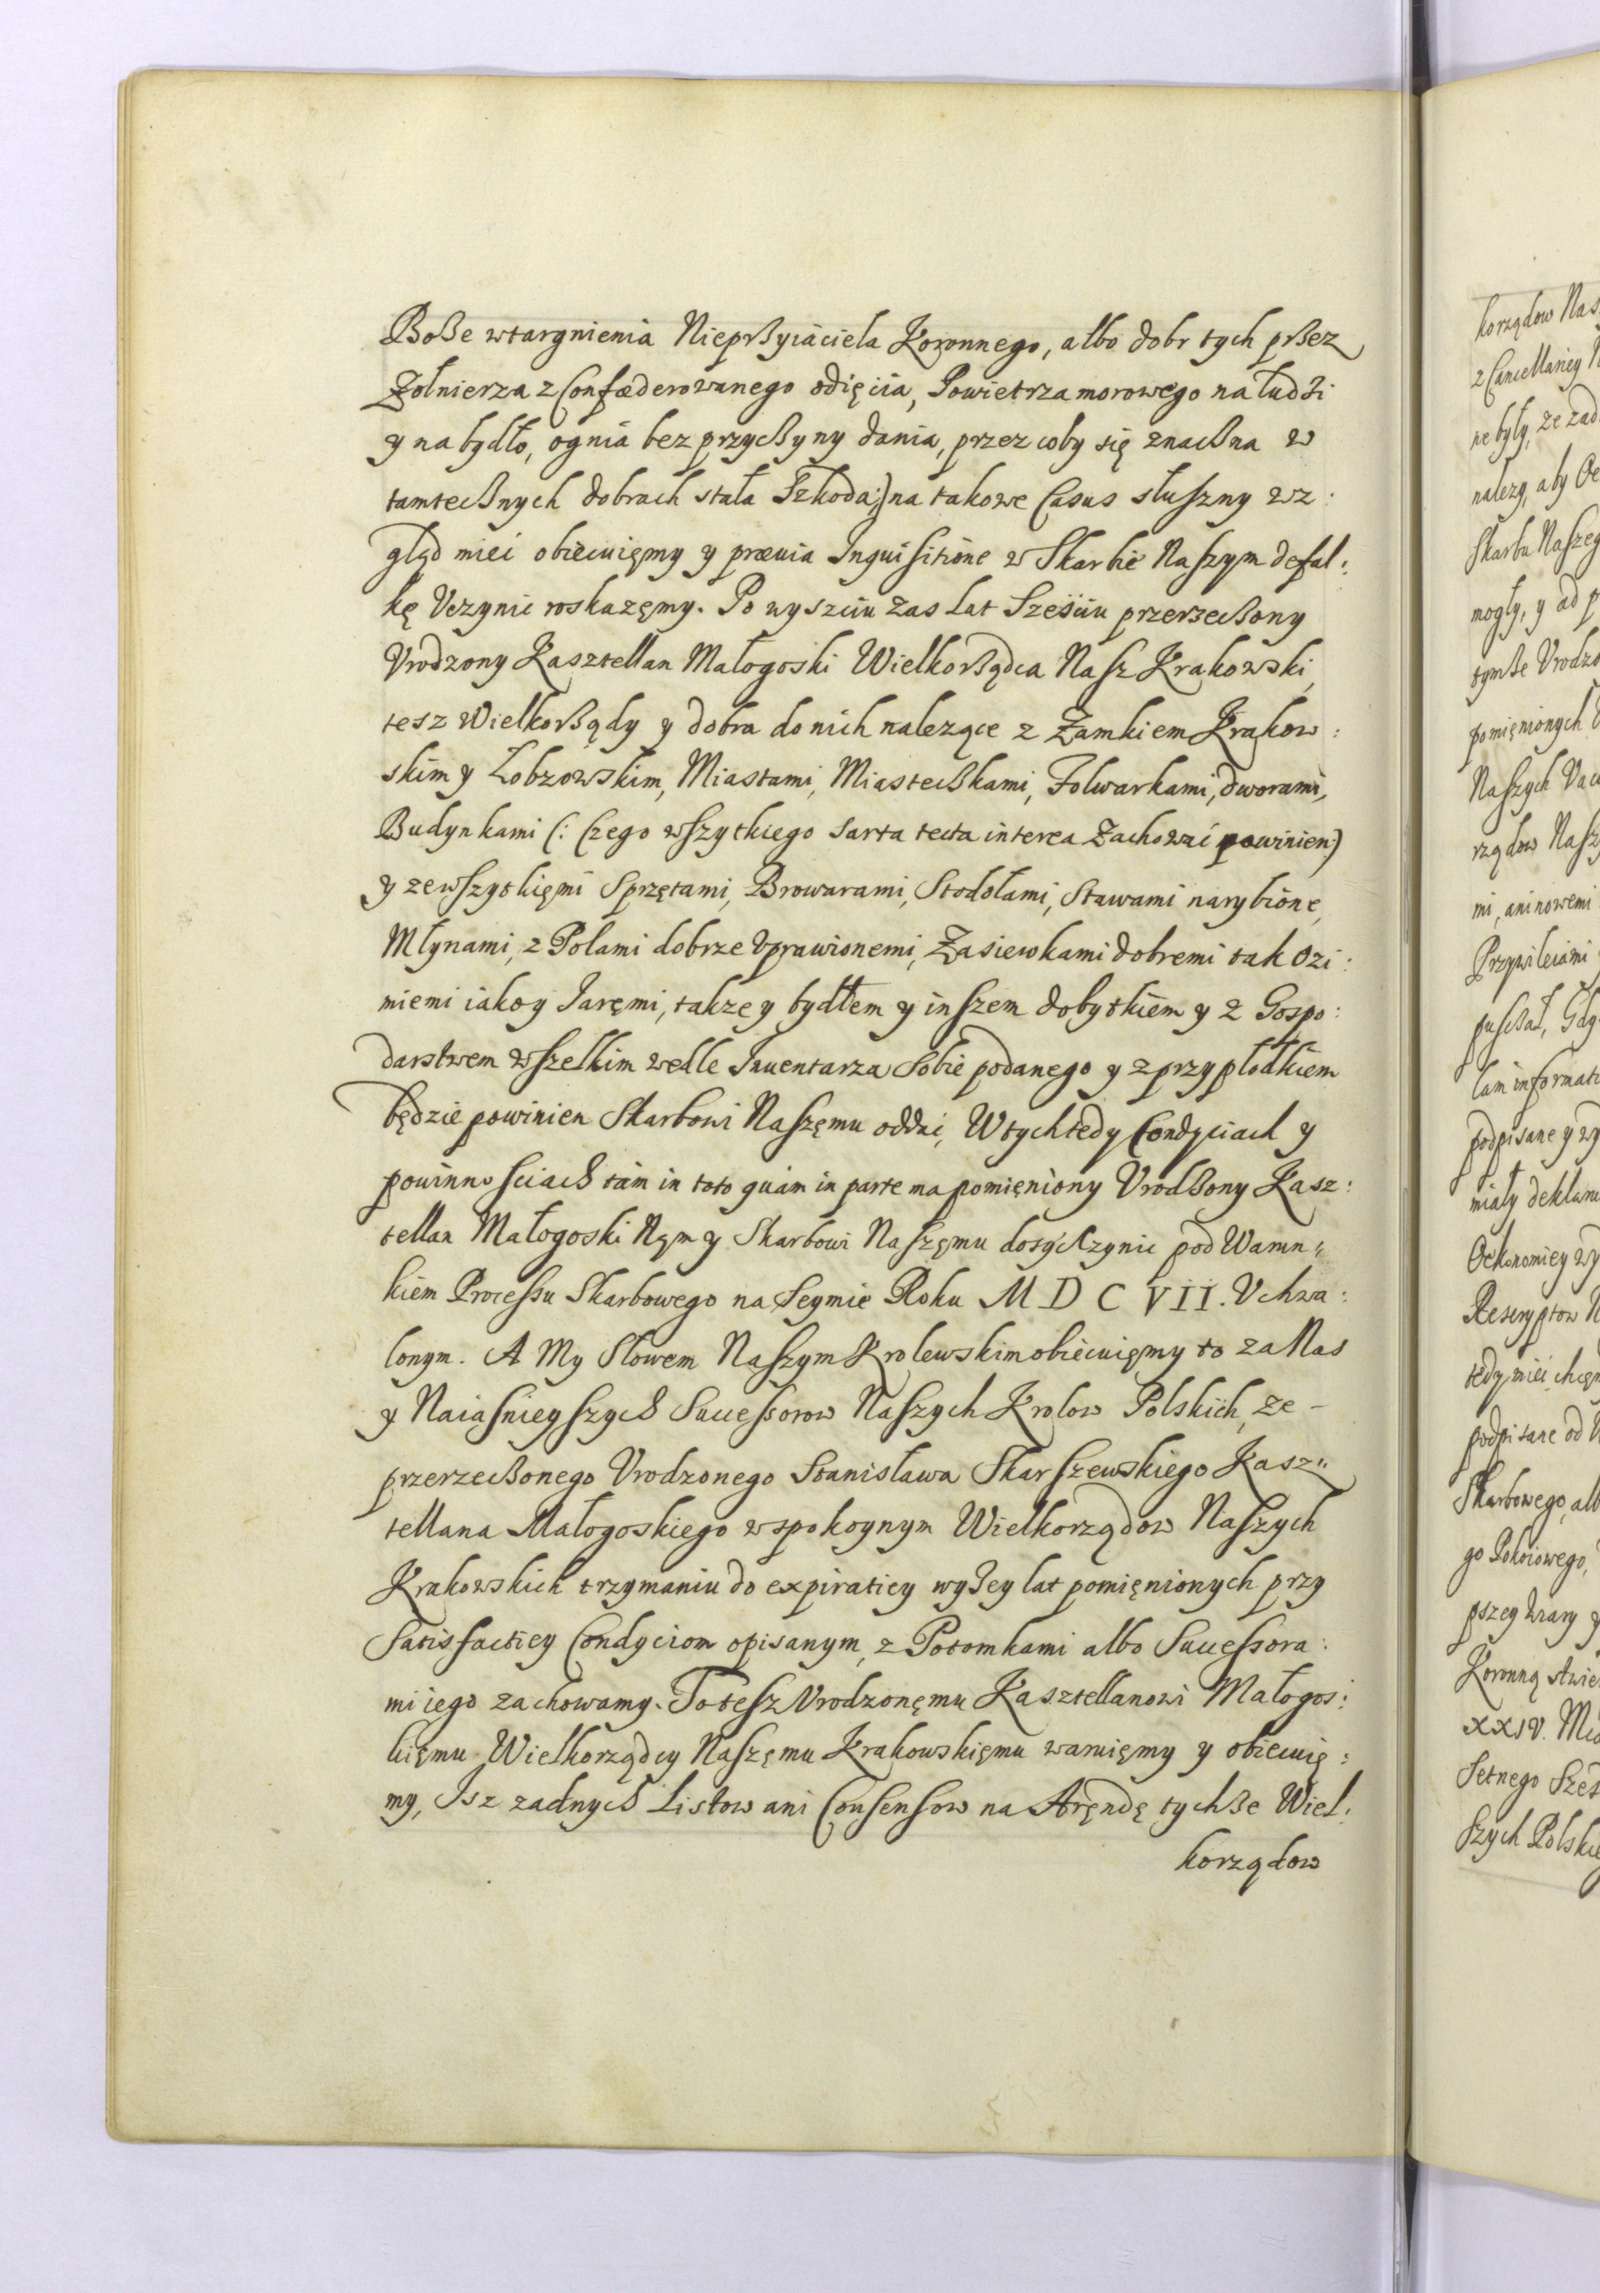 Boße wtargnienia Nieprßyiaciela Koronnego, albo dobr tych prßez
Zołnierza zConfæderowanego odięcia, Powietrza morowego na ludzi
y na bydło, ognia bez przycßyny dania, przez coby się znacßna w
tamtecßnych dobrach stała Szkoda:) na takowe Casus słuszny wz:
gląd mieć obiecuięmy y prævia Inquisitione w Skarbie Naszym defal:
kę Vczynic roskazęmy. Po wyszciu zas Lat Sześciu przerzecßony
Vrodzony Kasztellan Małogoski Wielkorßądca Nasz Krakowski,
tesz Wielkorßądy y dobra do nich nalezące z Zamkiem Krakow:
skim y Łobzowskim, Miastami, Miastecßkami, Folwarkami, dworami,
Budynkami (: Czego wszytkiego sarta tecta interea Zachować powinien:)
y zewszytkięmi Sprzętami, Browarami, Stodołami, Stawami narybione,
Młynami, z Polami dobrze Vprawionemi, Zasiewkami dobremi tak Ozi:
miemi iako y Jaręmi, takze y bydłem y inszem dobytkiem y z Gospo:
darstwem wszelkim wedle Inuentarza Sobie podanego y z przypłodkiem
będzie powinien Skarbowi Naszęmu oddać, W tych tedy Condyciach y
powinnosciach tàm in toto quàm in parte ma pomięniony Vrodßony Kasz:
tellan Małogoski Nąm y Skarbowi Naszęmu dosyć Czynic pod Warun:
kiem Processu Skarbowego na Seymie Roku M D C VII. Vchwa:
lonym. A My Słowem Naszym Krolewskim obiecuięmy to za Nas
y Naiasnieyszych Successorow Naszych Krolow Polskich, ze -
przerzecßonego Vrodzonego Stanisława Skarszewskiego Kasz:
tellana Małogoskiego w spokoynym Wielkorządow Naszych
Krakowskich trzymaniu do expiratiey wyßey lat pomięnionych przy
Satisfactiey Condyciom opisanym, z Potomkami albo Successora:
mi iego zachowamy. To tesz Vrodzonęmu Kasztellanowi Małogos:
kięmu Wielkorządcy Naszęmu Krakowskięmu waruięmy y obiecuię:
my, Isz zadnych Listow ani Consensow na Arędę tychße Wiel:
korządow
korządow Nas
z Cancellariey N
ne były, ze zad
nalezą, aby Oe
Skarbu Naszeg
mogły, y ad p
tymße Vrodzo
pomięnionych
Naszych Vac
rządow Naszy
mi, ani nowemi
Przywileiami
puscßał, Gdy
lam informati
podpisane y wy
miały deklaru
Oekonomiey wy
Rescryptow N
tedy mieć chcęm
podpisane od
Skarbowego, alb
go Pokoiowego,
pszey wiary y
Koronną stwier
XXIV. Mie
Setnego Szes
szych Polskie